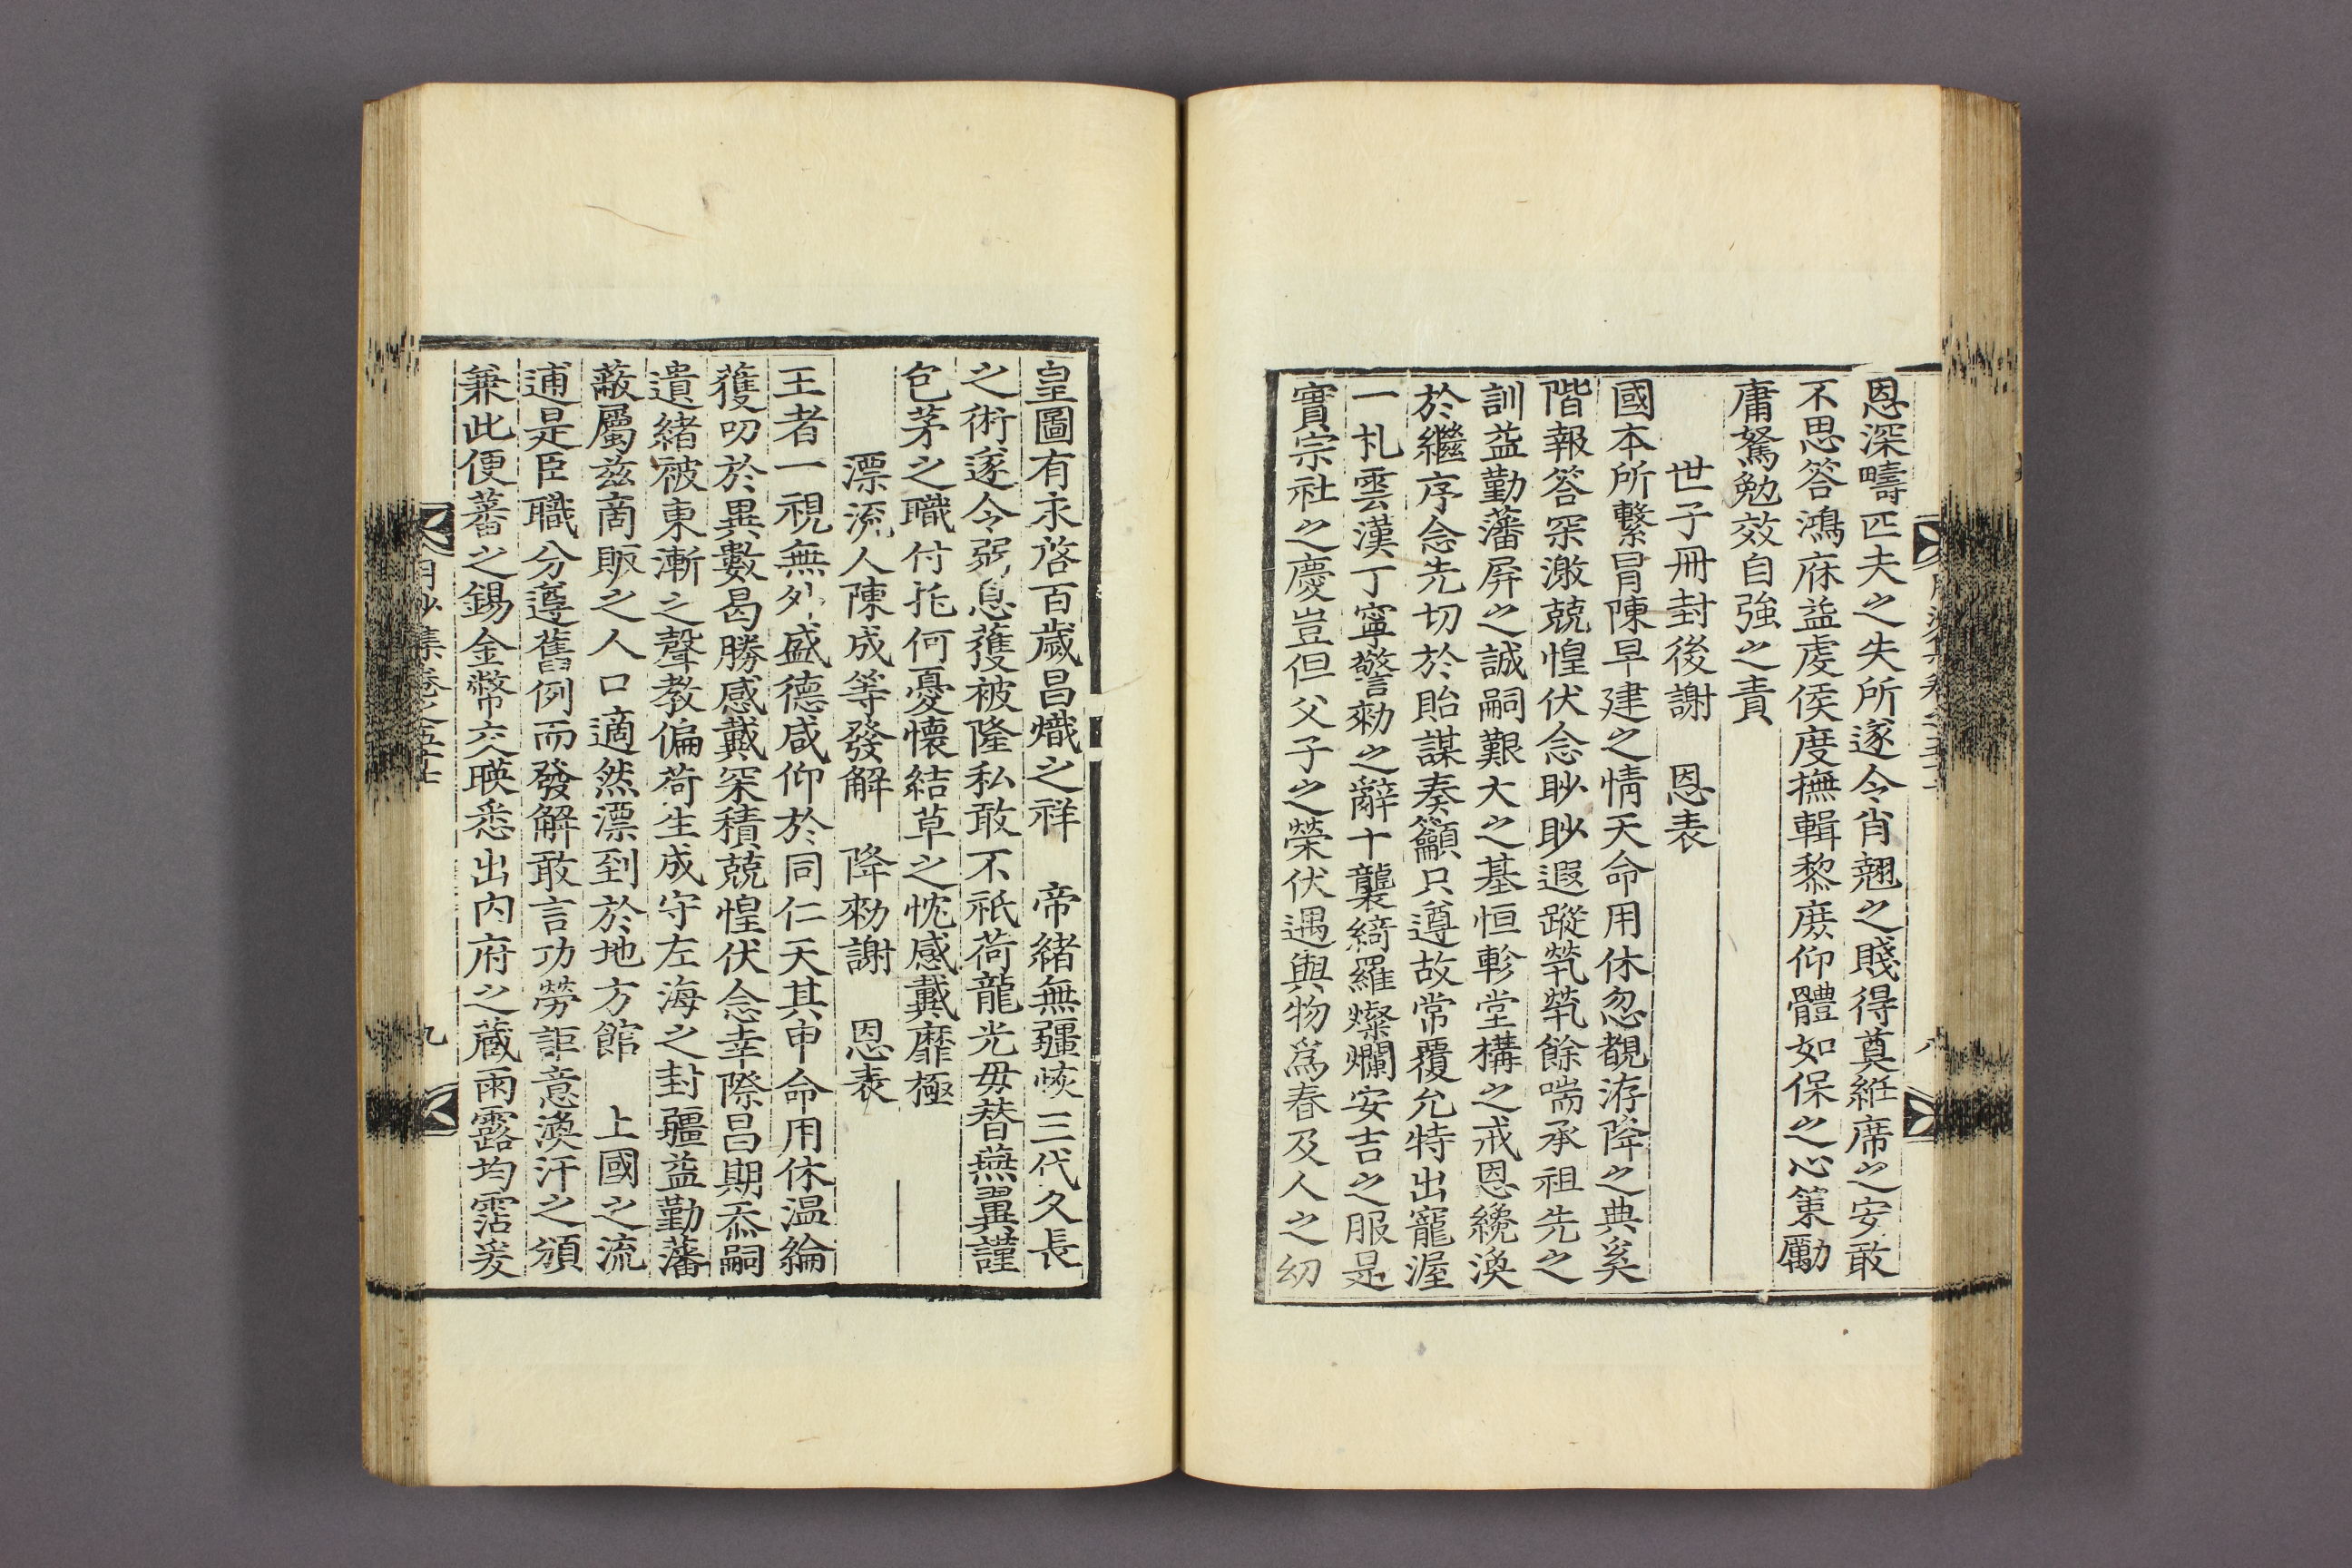 恩深疇匹夫之失所遂令肖翹之賤得奠絍席之安敢
不思答鴻庥益虔侯度撫輯黎庶仰體如保之心策勵
庸駑勉效自強之責
世子冊封後謝　恩表
國本所繫冐陳早建之情天命用休忽覩洊降之典奚
階報答罙激兢惶伏念眇眇遐蹤煢煢餘喘承祖先之
訓益勤藩屏之誠嗣艱大之基恒軫堂構之戒恩纔渙
於繼序念先切於貽謀奏籲只遵故常覆允特出寵渥
一札雲漢丁寧警勑之辭十襲綺羅燦爛安吉之服是
實宗社之慶豈但父子之榮伏遇與物爲春及人之幼
皇圖有永啓百歲昌熾之祥　帝緒無疆恢三代久長
之術遂令弱息獲被隆私敢不祇荷龍光毋替燕翼謹
包茅之職付托何憂懷結草之忱感戴靡極
漂流人陳成等發解　降勑謝　恩表
王者一視無外盛德咸仰於同仁天其申命用休温綸
獲叨於異數曷勝感戴罙積兢惶伏念幸際昌期忝嗣
遺緒被東漸之聲教偏荷生成守左海之封疆益勤藩
蔽屬茲商販之人口適然漂到於地方館　上國之流
逋是臣職分遵舊例而發解敢言功勞詎意渙汗之頒
兼此便蕃之錫金幣交暎悉出内府之藏雨露均霑爰
月沙集卷之五十
九
八